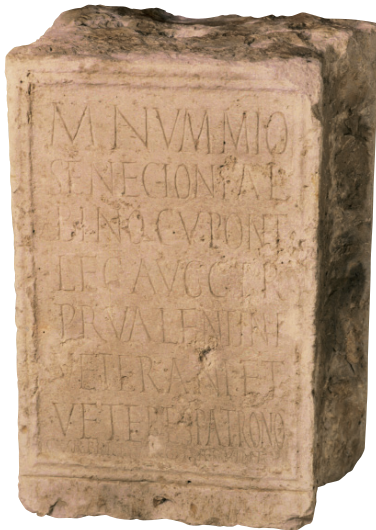 M NVMMIO
SENECIONI AL
BINO C V PONT
LEG AVGG PR
PR VALENTINI
VETERANI ET
VETERES PATRONO